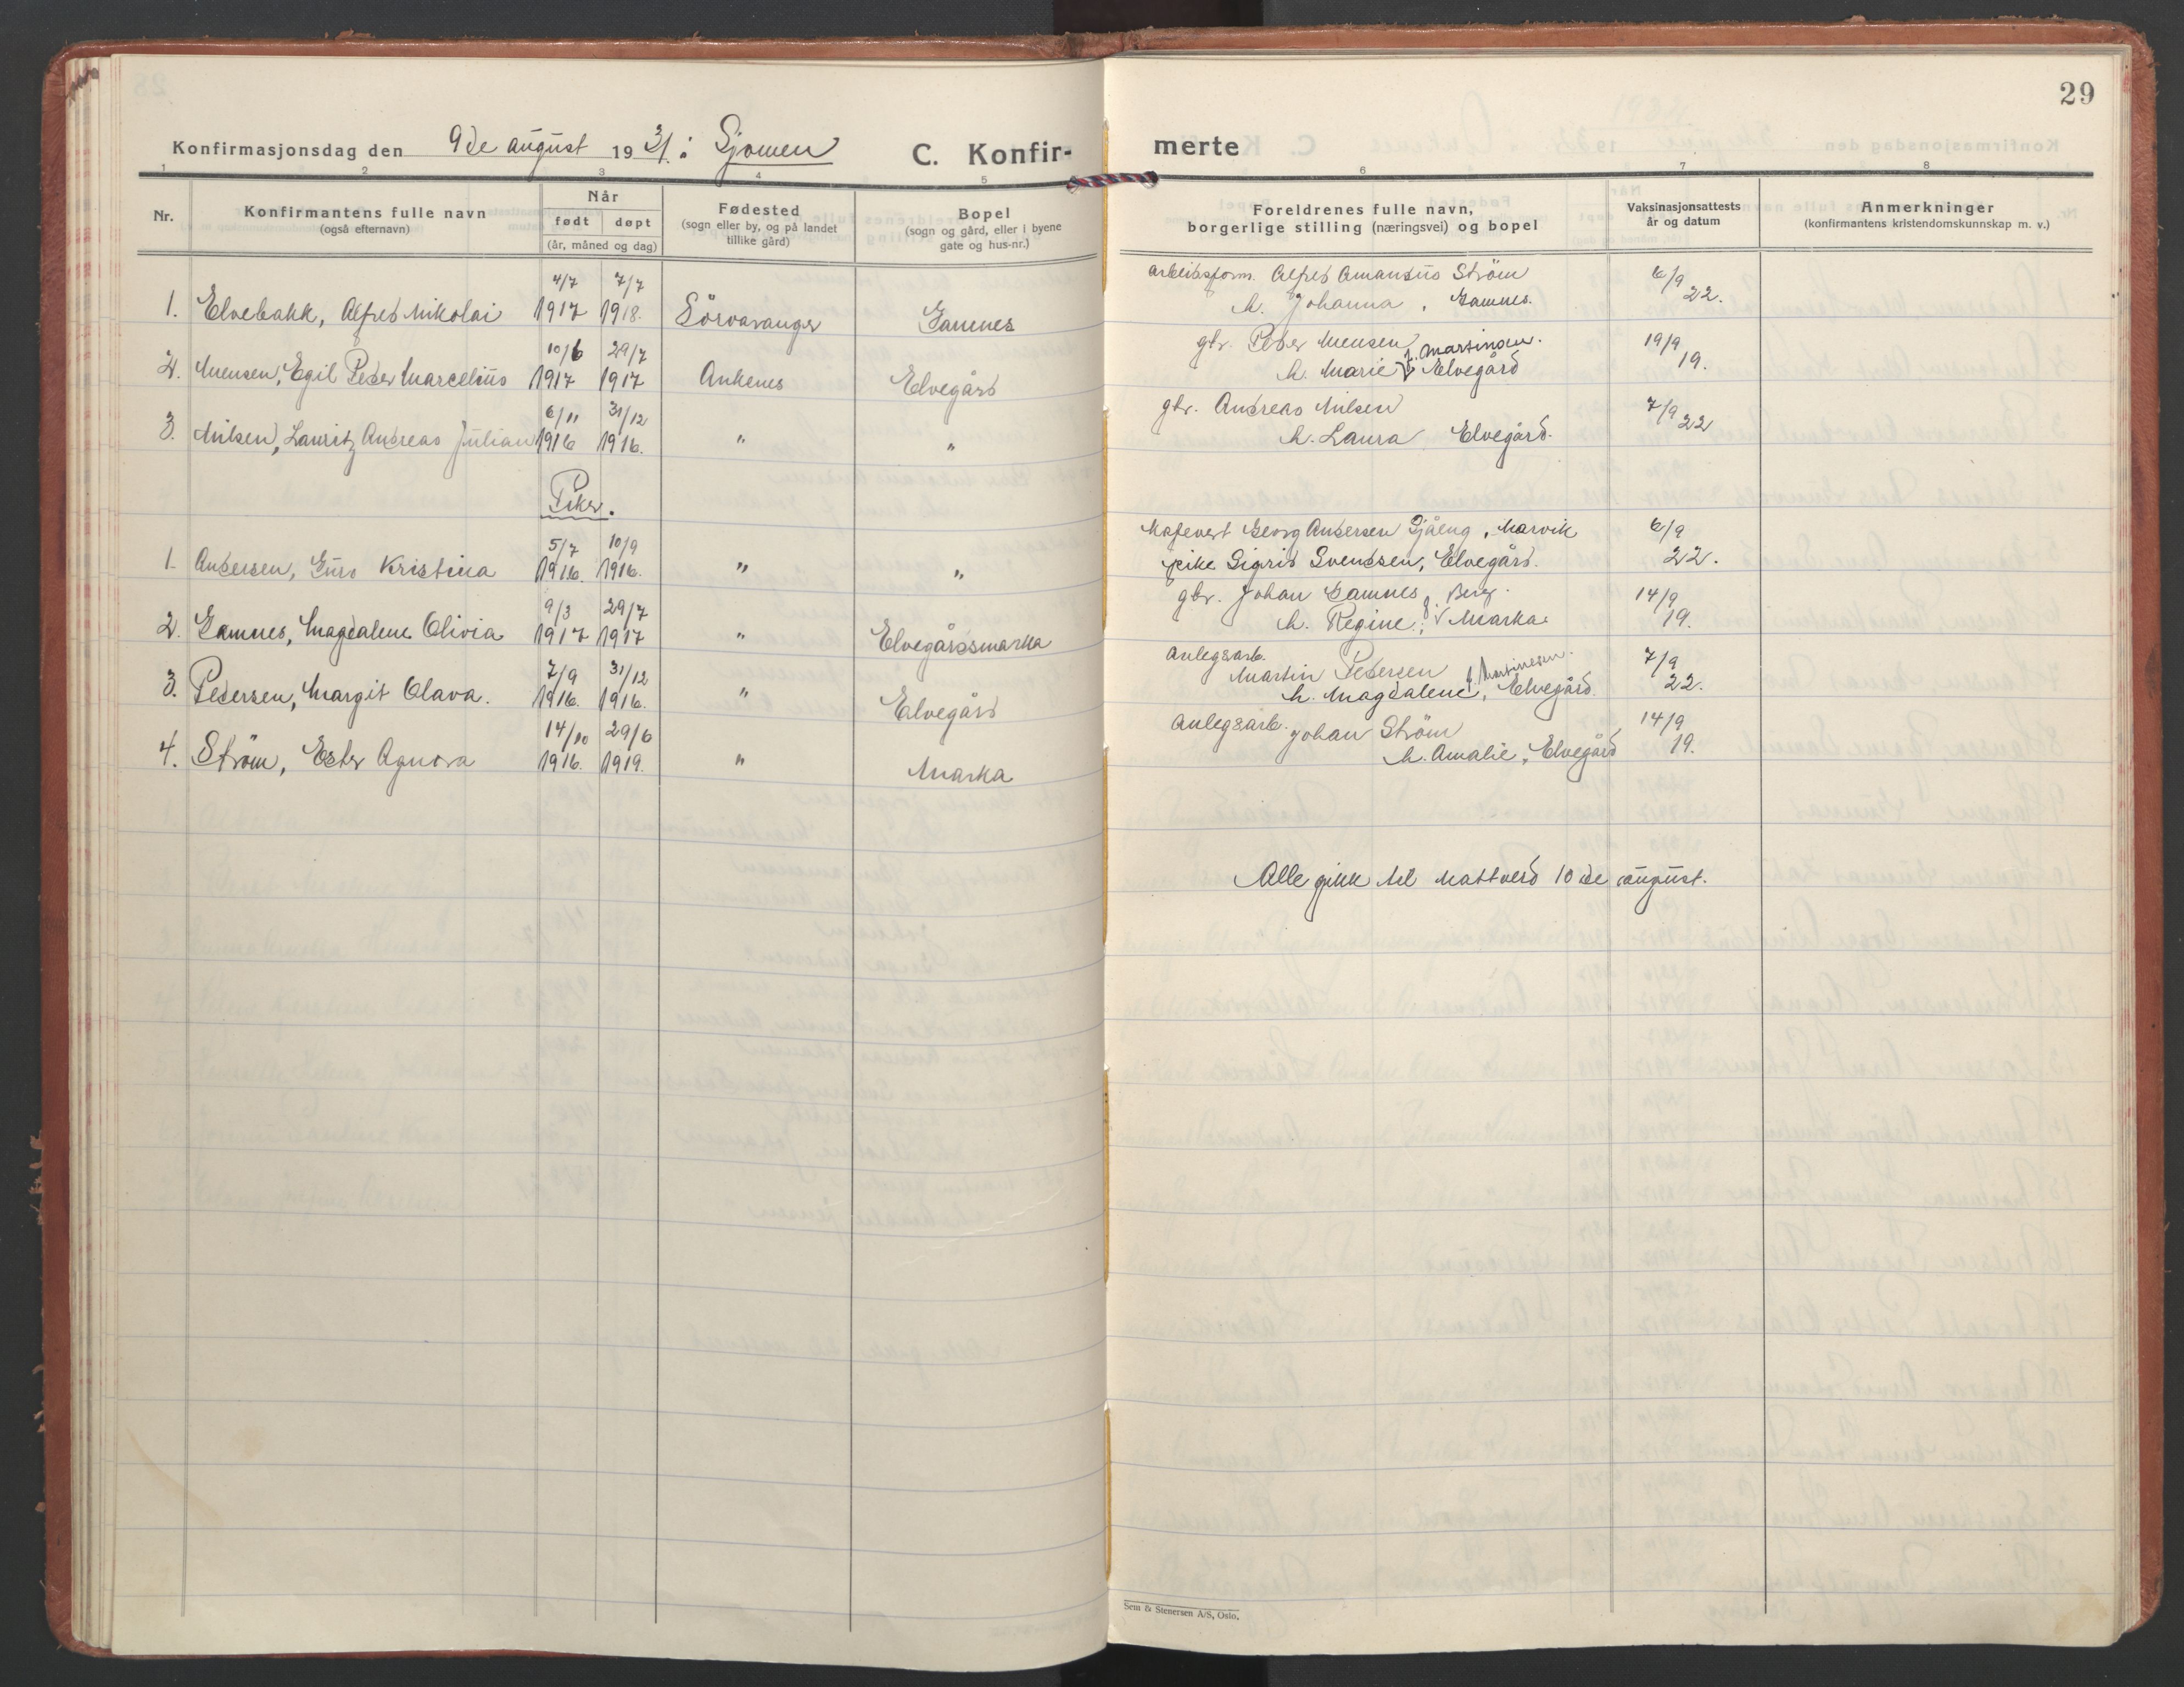 29
Konfirmasjonsdag den 9de august 1931 i Sjomen C. Konfirmerte
1 2 3 4 5 6 7 8
Nr.
Konfirmantens fulle navn
(også efternavn)
Når
født døpt
(år, måned og dag)
Fødested
(sogn eller by, og på landet
tillike gård)
Bopel
(sogn og gård, eller i byene
gate og hus-nr.)
Foreldrenes fulle navn,
borgerlige stilling (næringsvei) og bopel
Vaksinasjonsattests
år og datum
Anmerkninger
(konfirmantens kristendomskunnskap m. v.)
4/7 7/7 arbeidsform. Alfred Amandus Ström 6/9
1. Elvebakk, Alfred Nikolai 1917 1918. Sörvaranger Gamnes h. Johanna, Gamnes. 22.
10/6 29/7 gbr. Peder Mensen f. Martinsen. 19/9
2. Mensen, Egil Peder Marcelius 1917 1917 Ankenes Elvegård h. Marie, Elvegård 19.
6/11 31/12 gbr. Andreas Nilsen 7/9
3. Nilsen, Lauritz Andreas Julian 1916 1916. " " h. Laura Elvegård. 22
Piker.
5/7 10/9 Georg Andersen Sjåeng, Narvik 6/9
1. Andersen, Guro Kristina 1916. 1916. " " pike Sigrid Svendsen, Elvegård. 22.
9/3 29/7 gbr. Johan Gamnes f. Berg. 14/9
2. Gamnes, Magdalene Olivia 1917 1917 " Elvegårdsmarka h. Regine, Marka. 19.
7/9 31/12 Anlegsarb. Martin Pedersen f. Martinesen. 7/9
3. Pedersen, Margit Olava. 1916. 1916. " Elvegård h. Magdalene, Elvegård. 22.
14/10 29/6 Anlegsarb. Johan Ström 14/9
4. Ström, Ester Agnora 1916. 1919. " Marka h. Amalie, Elvegård 19.
Alle gikk til nattverd 10de august.
Sem & Stenersen A/S, Oslo.